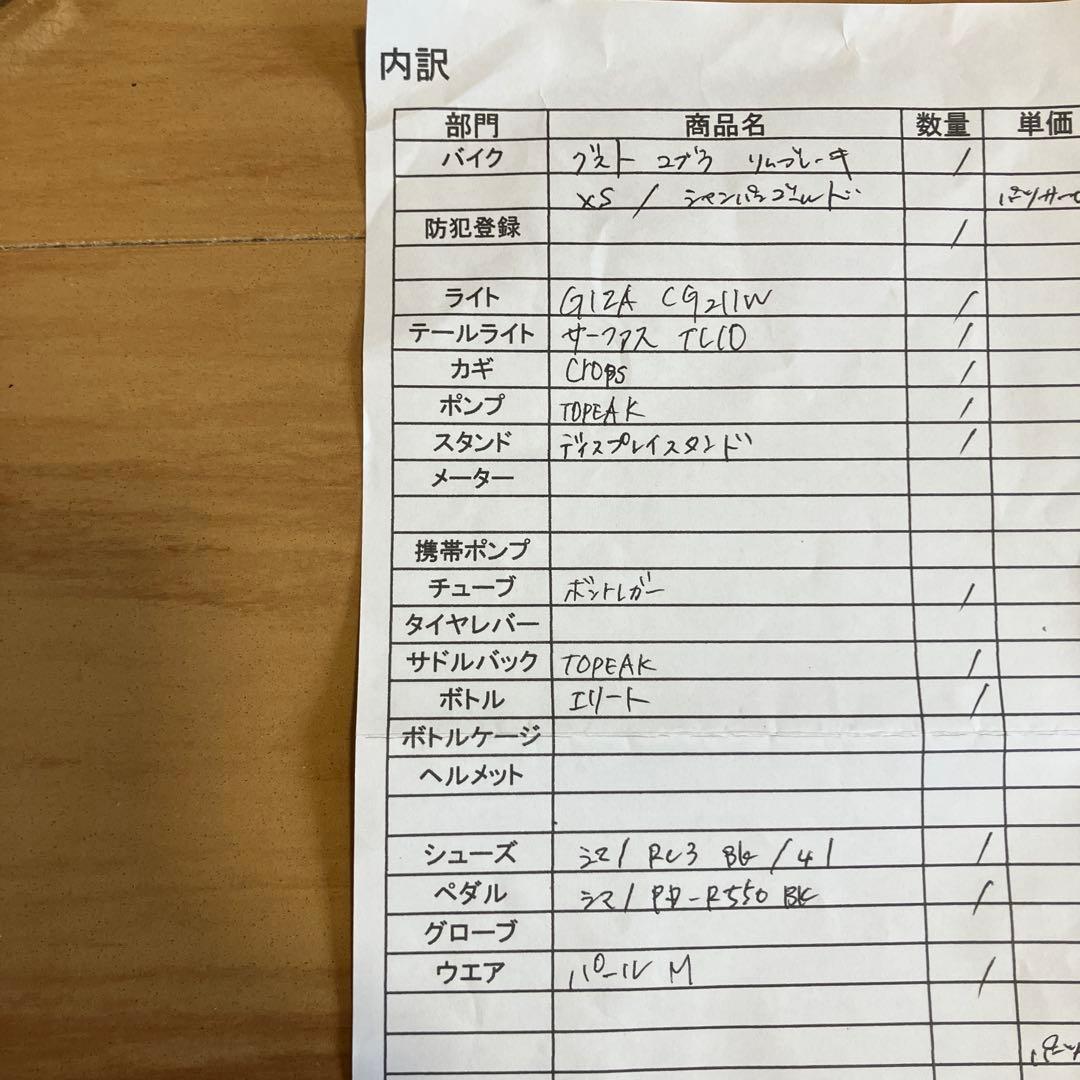 内訳
部門 商品名 数量 単価
バイク グスト コブラ リムブレーキ 1
XS / シャンパンゴールド
防犯登録 1
ライト GIZA CG211W 1
テールライト サーファス TL10 1
カギ Crops 1
ポンプ TOPEAK 1
スタンド ディスプレイスタンド 1
メーター
携帯ポンプ
チューブ ボントレガー 1
タイヤレバー
サドルバック TOPEAK 1
ボトル エリート 1
ボトルケージ
ヘルメット
シューズ シマノ RC3 BK / 41 1
ペダル シマノ PD-R550 BK 1
グローブ
ウエア パール M 1